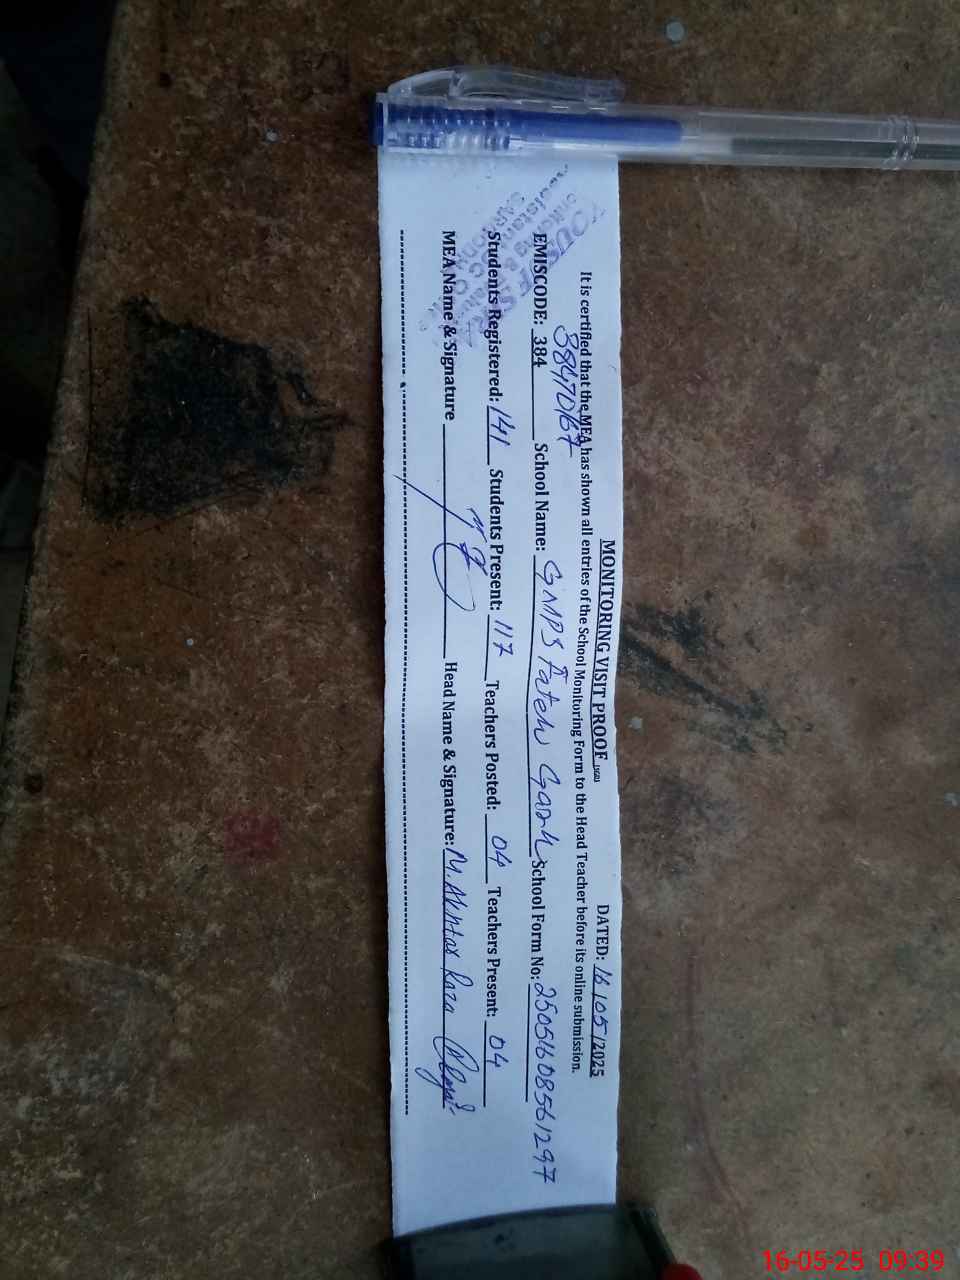 MONITORING VISIT PROOF DATED: 16/05/2025
It is certified that the MEA has shown all entries of the School Monitoring Form to the Head Teacher before its online submission.
38470167
EMISCODE: 384 School Name: GMPS Fateh Garh School Form No: 25051608561297
Students Registered: 141 Students Present: 117 Teachers Posted: 04 Teachers Present: 04
MEA Name & Signature Head Name & Signature: M. Akhtar Raza
16-05-25 09:39